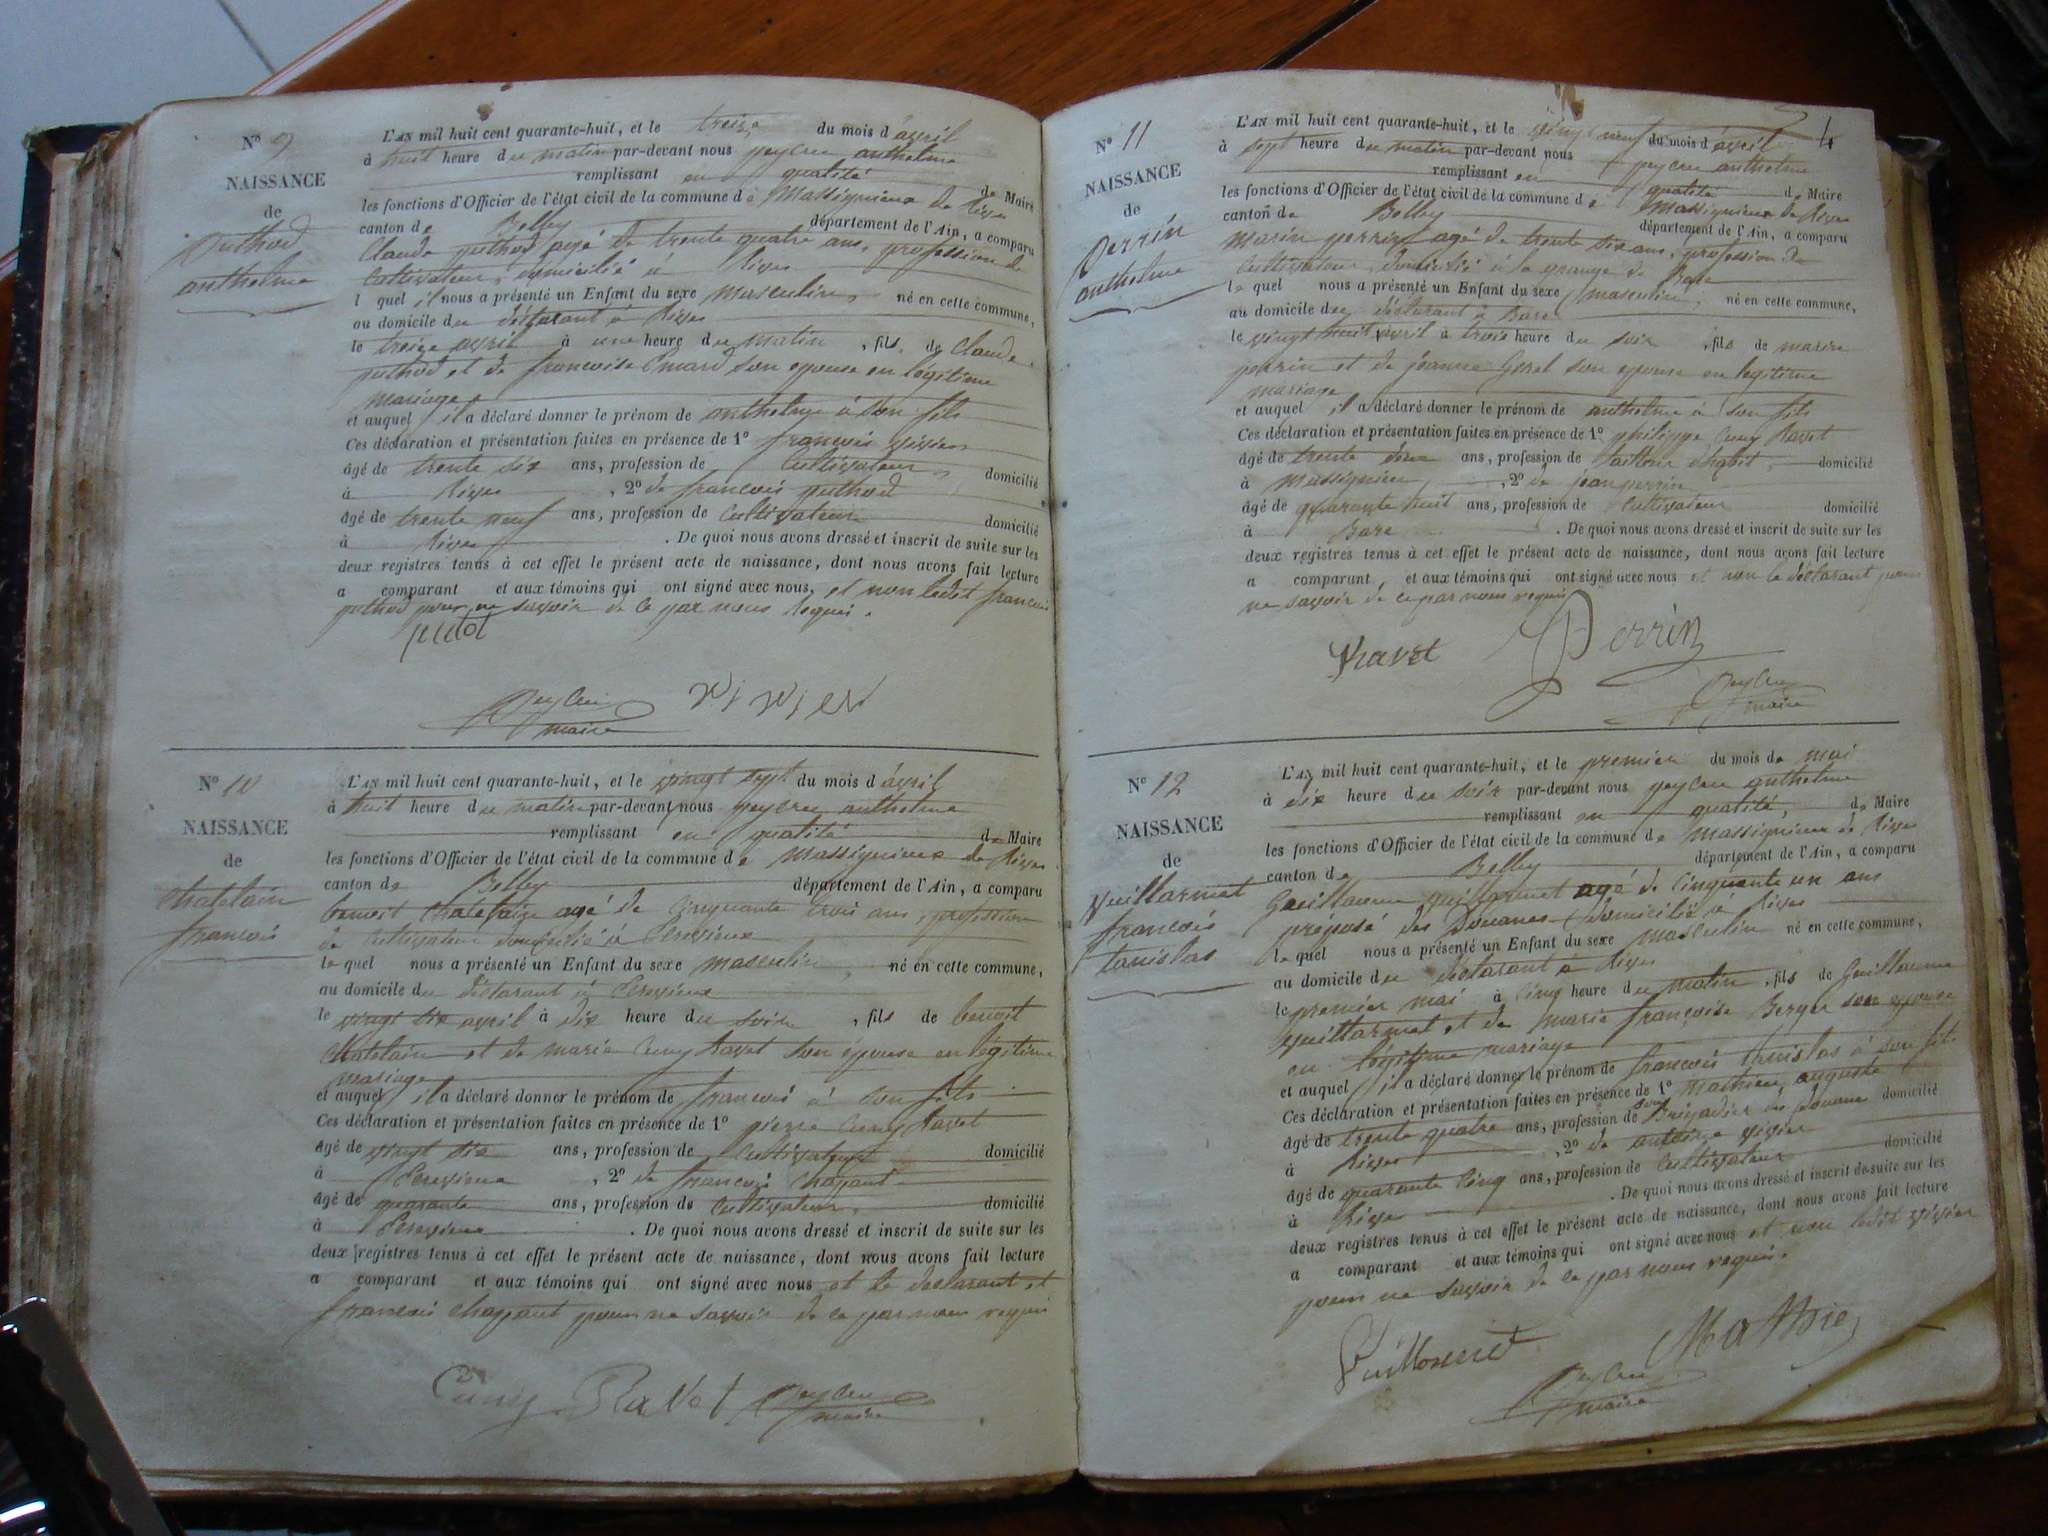 N° 9
NAISSANCE
de
puthod
anthelme
L'AN mil huit cent quarante-huit, et le treize du mois d'avril
à huit heure du matin par-devant nous peyCru anthelme
remplissant en qualité de Maire
les fonctions d'Officier de l'état civil de la commune de Massignieux de Rives
canton de Belley département de l'Ain, a comparu
Claude puthod agé de trente quatre ans, profession de
Cultivateur, domicilié à Rives
l quel il nous a présenté un Enfant du sexe masculin, né en cette commune,
au domicile du déclarant à Rives
le treize avril à une heure du matin, fils de Claude
puthod et de francoise son epouse en légitime
mariage
et auquel il a déclaré donner le prénom de anthelme à son fils
Ces déclaration et présentation faites en présence de 1° francois vivier
âgé de trente six ans, profession de Cultivateur domicilié
à Rives, 2° de francois puthod
âgé de trente neuf ans, profession de Cultivateur domicilié
à Rives. De quoi nous avons dressé et inscrit de suite sur les
deux registres tenus à cet effet le présent acte de naissance, dont nous avons fait lecture
a comparant et aux témoins qui ont signé avec nous, et non ledit francois
puthod pour ne savoir de ce par nous Requi.
putod
peyCru maire
vivier
N° 10
NAISSANCE
de
Chatelain
francois
L'AN mil huit cent quarante-huit, et le vingt sept du mois d'avril
à huit heure du matin par-devant nous peyCru anthelme
remplissant en qualité de Maire
les fonctions d'Officier de l'état civil de la commune de Massignieux de Rives
canton de Belley département de l'Ain, a comparu
benoit Chatelain agé de Cinquante trois ans, profession
de Cultivateur domicilié à
le quel nous a présenté un Enfant du sexe masculin, né en cette commune,
au domicile du déclarant à
le vingt six avril à dix heure du soir, fils de benoit
Chatelain et de marie Cuny Ravet son épouse en légitime
mariage
et auquel il a déclaré donner le prénom de francois à son fils
Ces déclaration et présentation faites en présence de 1° pierre Cuny Ravet
âgé de vingt six ans, profession de Cultivateur domicilié
à , 2° de francois Chapant
âgé de quarante ans, profession de Cultivateur, domicilié
à . De quoi nous avons dressé et inscrit de suite sur les
deux registres tenus à cet effet le présent acte de naissance, dont nous avons fait lecture
a comparant et aux témoins qui ont signé avec nous et le declarant et
francois Chapant pour ne savoir de ce par nous requi
Cuny Ravet peyCru maire
4
N° 11
NAISSANCE
de
Perrin
anthelme
L'AN mil huit cent quarante-huit, et le vingt neuf du mois d'avril
à sept heure du matin par-devant nous peyCru anthelme
remplissant en qualité de Maire
les fonctions d'Officier de l'état civil de la commune de Massignieux de Rives
canton de Belley département de l'Ain, a comparu
Marin perrin agé de trente six ans, profession de
Cultivateur, domicilié à la grange de Bare
le quel nous a présenté un Enfant du sexe masculin, né en cette commune,
au domicile du déclarant à Bare
le vingt huit avril à trois heure du soir, fils de marin
perrin et de jeanne son epouse en legitime
mariage
et auquel il a déclaré donner le prénom de anthelme à son fils
Ces déclaration et présentation faites en présence de 1° philippe Cuny Ravet
âgé de trente deux ans, profession de tailleur d'habit, domicilié
à Massignieu, 2° de jean perrin
âgé de quarante huit ans, profession de Cultivateur domicilié
à Bare. De quoi nous avons dressé et inscrit de suite sur les
deux registres tenus à cet effet le présent acte de naissance, dont nous avons fait lecture
a comparant, et aux témoins qui ont signé avec nous et non le déclarant pour
ne savoir de ce par nous requi
Ravet Perrin
peyCru maire
N° 12
NAISSANCE
de
guillarmet
francois
tanislas
L'AN mil huit cent quarante-huit, et le premier du mois de mai
à six heure du soir par-devant nous peyCru anthelme
remplissant en qualité, de Maire
les fonctions d'Officier de l'état civil de la commune de Massignieux de Rives
canton de Belley département de l'Ain, a comparu
Guillaume guillarmet agé de Cinquante un ans
préposé des Douanes domicilié à Rives
le quel nous a présenté un Enfant du sexe masculin né en cette commune,
au domicile du déclarant à Rives
le premier mai à Cinq heure du matin, fils de Guillaume
guillarmet et de marie françoise Berger son epouse
en légitime mariage
et auquel il a déclaré donner le prénom de francois tanislas à son fils
Ces déclaration et présentation faites en présence de 1° Mathieu auguste
âgé de trente quatre ans, profession de sous Brigadier des Douane domicilié
à Rives, 2° de antoine vivier
âgé de quarante Cinq ans, profession de Cultivateur domicilié
à Rives. De quoi nous avons dressé et inscrit de suite sur les
deux registres tenus à cet effet le présent acte de naissance, dont nous avons fait lecture
a comparant et aux témoins qui ont signé avec nous et non ledit vivier
pour ne savoir de ce par nous requi.
Mathie
peyCru maire